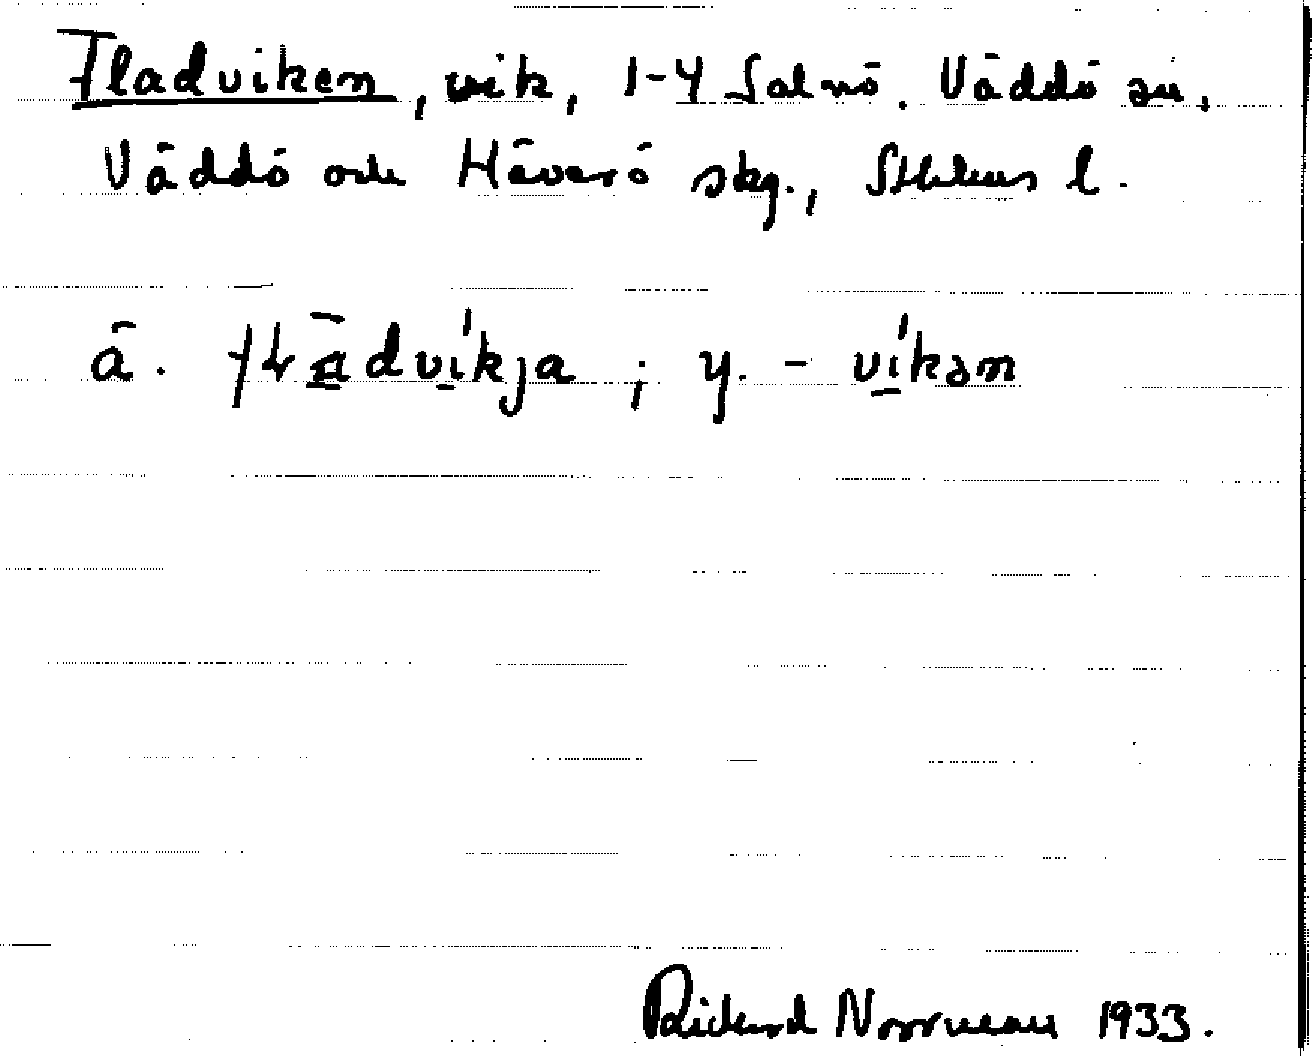 Fladviken, vik, 1-4 Salnö. Väddö sn,
Väddö och Häverö skg., Sthlms l.
ä. fɫādvíkja ; y. - víkən
Rickard Norrman 1933.